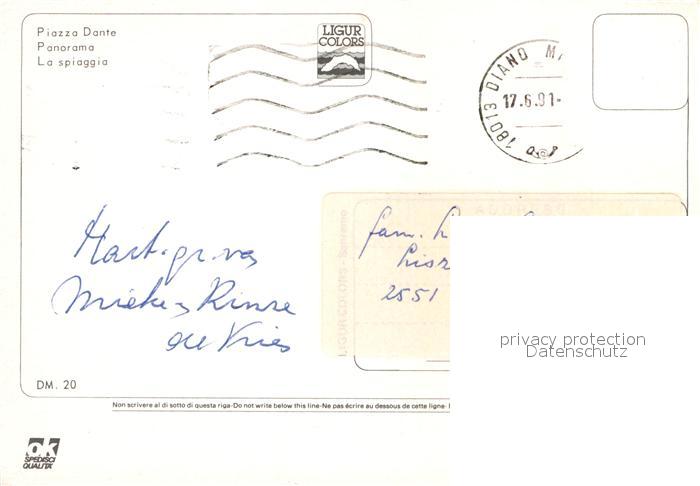 Piazza Dante
Panorama
La spiaggia
LIGUR
COLORS
18013 DIANO
17.6.91-
Hart. gr. van
Mieke en Rinse
de Vries
fam.
2551
LIGUR COLORS - Sanremo
privacy protection
Datenschutz
DM. 20
Non scrivere al di sotto di questa riga-Do not write below this line-Ne pas écrire au dessous de cette ligne-
ok
SPEDISCI
QUALITA'